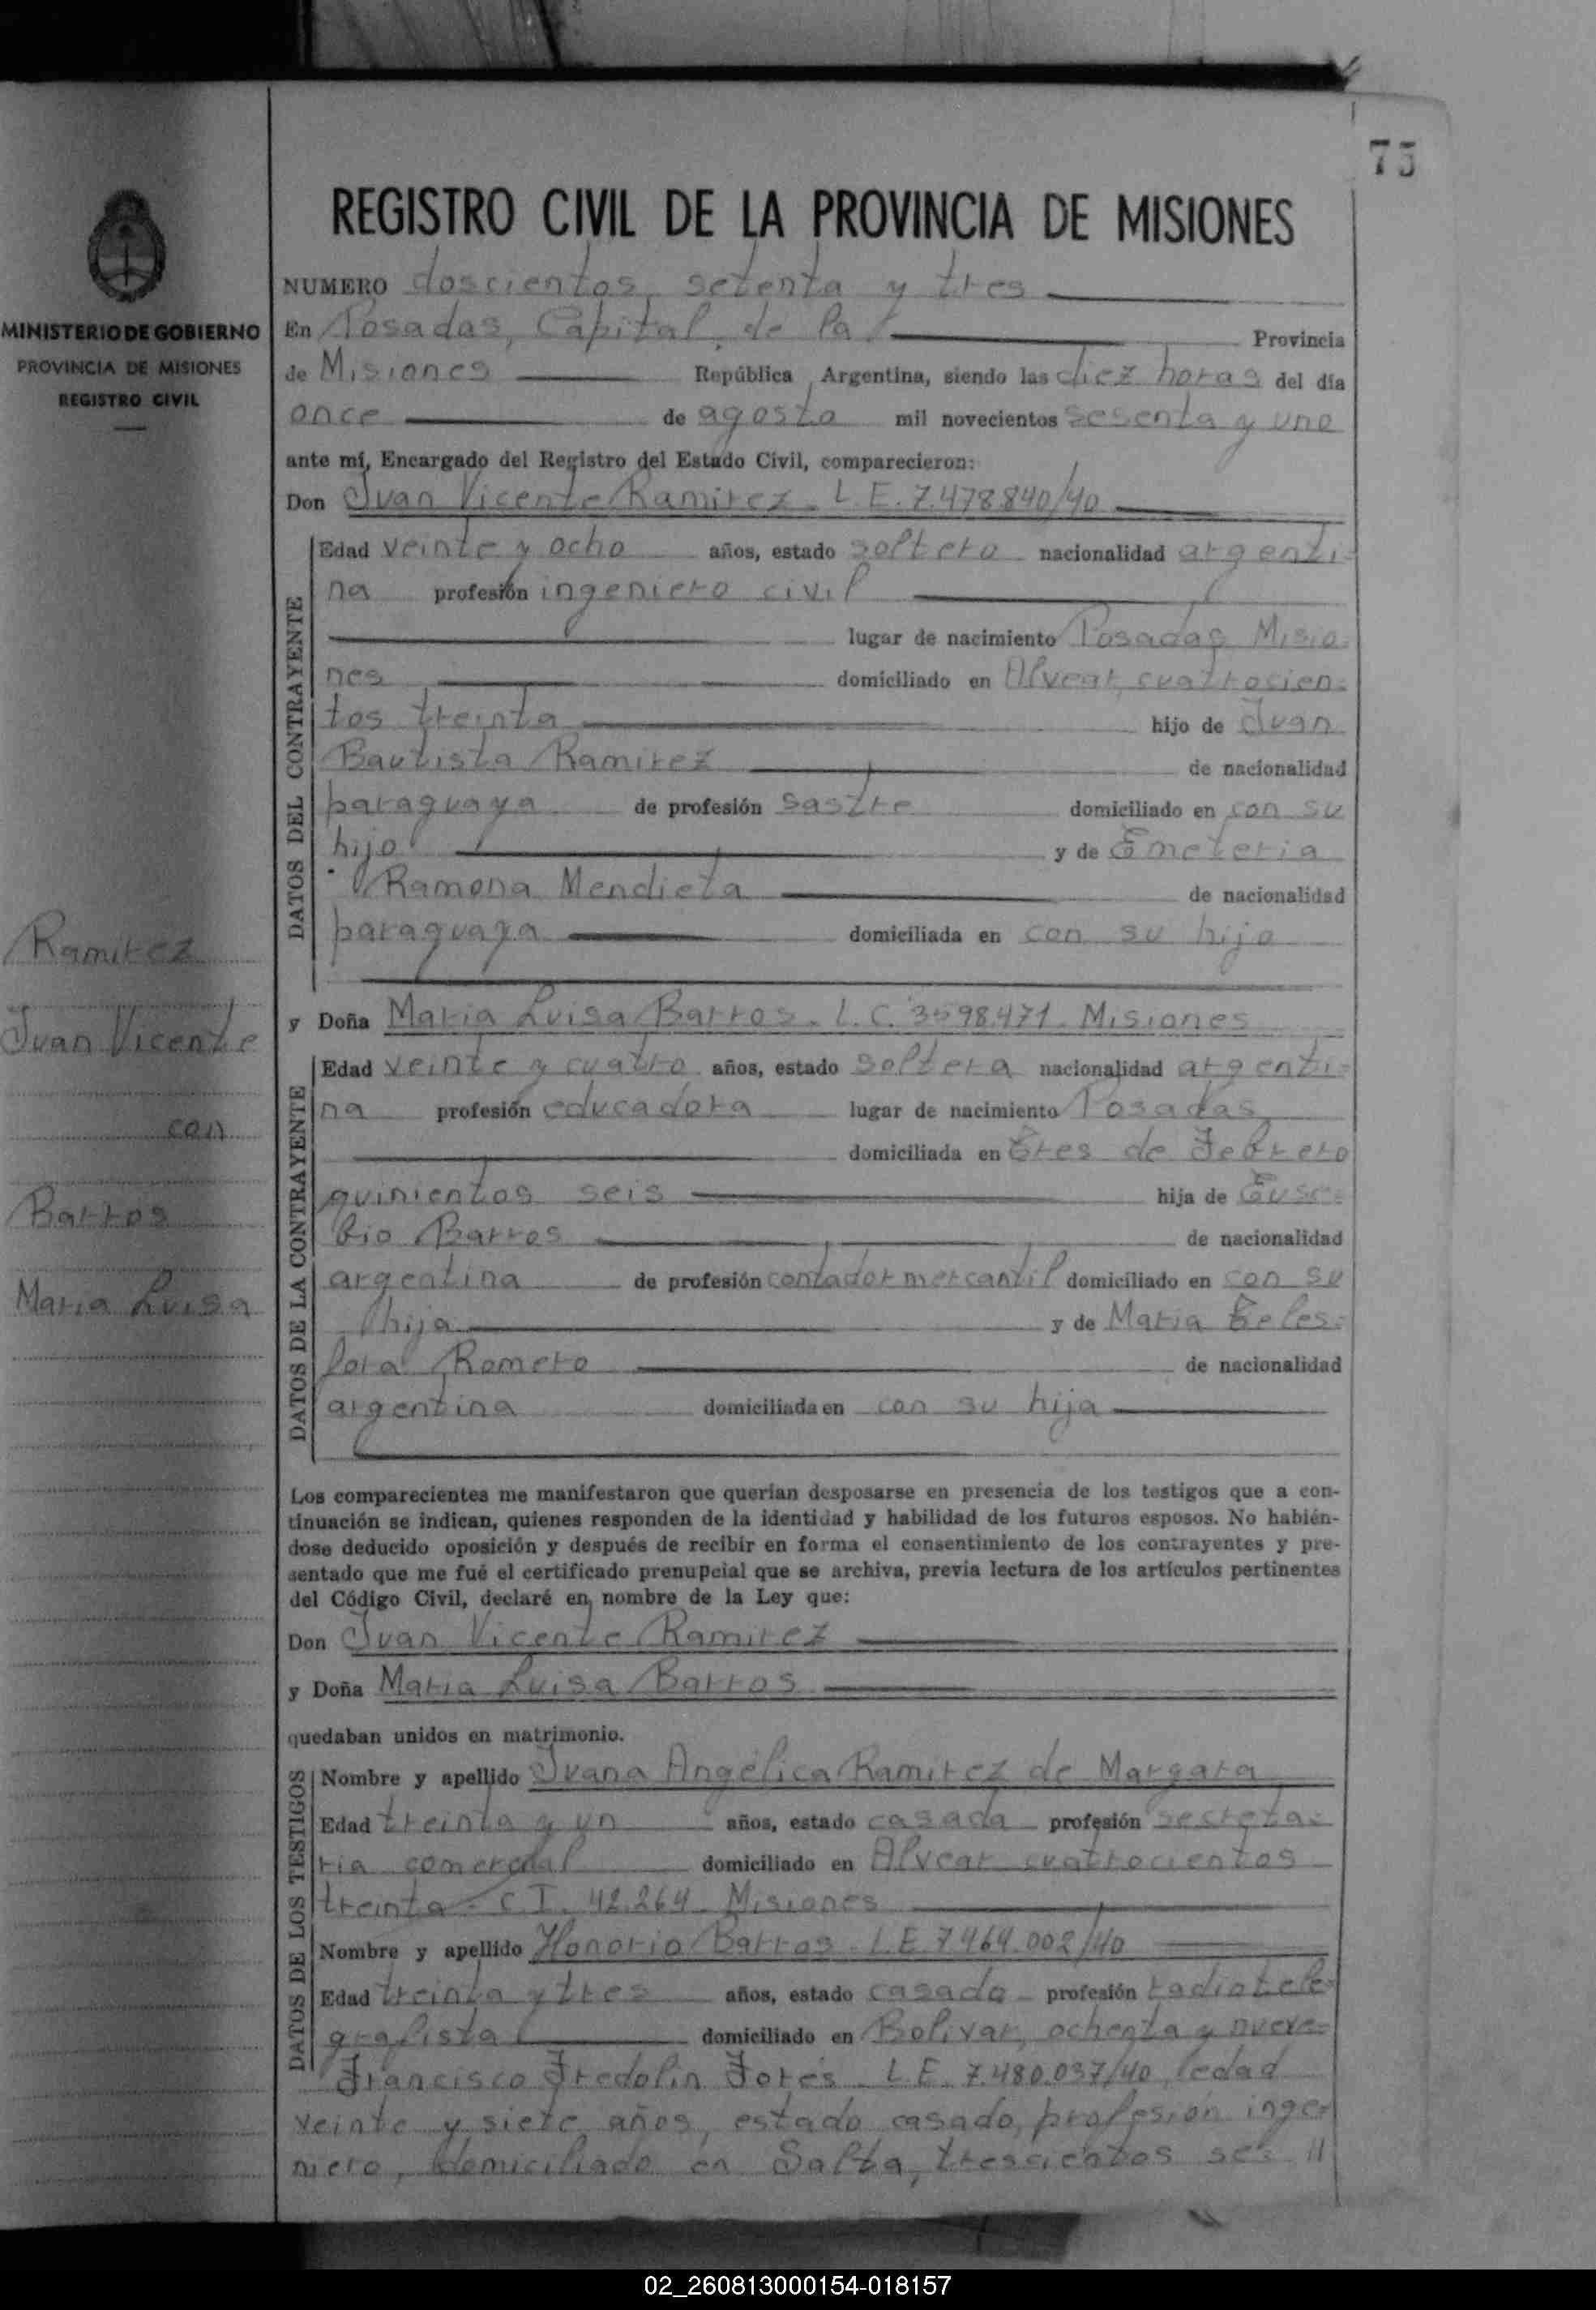 75
REGISTRO CIVIL DE LA PROVINCIA DE MISIONES
MINISTERIO DE GOBIERNO
PROVINCIA DE MISIONES
REGISTRO CIVIL
Ramirez
Juan Vicente
con
Barros
Maria Luisa
NUMERO doscientos setenta y tres
En Posadas, Capital de la Provincia
de Misiones República Argentina, siendo las diez horas del día
once de agosto mil novecientos sesenta y uno
ante mí, Encargado del Registro del Estado Civil, comparecieron:
Don Juan Vicente Ramirez - L.E. 7.478.840/40
DATOS DEL CONTRAYENTE
Edad veinte y ocho años, estado soltero nacionalidad argenti-
na profesión ingeniero civil
lugar de nacimiento Posadas Misio-
nes domiciliado en Alvear, cuatrocien-
tos treinta hijo de Juan
Bautista Ramirez de nacionalidad
paraguaya de profesión sastre domiciliado en con su
hijo y de Emeteria
Ramona Mendieta de nacionalidad
paraguaya domiciliada en con su hijo
y Doña Maria Luisa Barros - L.C. 3598.471 - Misiones
DATOS DE LA CONTRAYENTE
Edad veinte y cuatro años, estado soltera nacionalidad argenti-
na profesión educadora lugar de nacimiento Posadas
domiciliada en Tres de Febrero
quinientos seis hija de Euse-
bio Barros de nacionalidad
argentina de profesión contador mercantil domiciliado en con su
hija y de Maria Teles-
fora Romero de nacionalidad
argentina domiciliada en con su hija
Los comparecientes me manifestaron que querían desposarse en presencia de los testigos que a con-
tinuación se indican, quienes responden de la identidad y habilidad de los futuros esposos. No habién-
dose deducido oposición y después de recibir en forma el consentimiento de los contrayentes y pre-
sentado que me fué el certificado prenupcial que se archiva, previa lectura de los artículos pertinentes
del Código Civil, declaré en nombre de la Ley que:
Don Juan Vicente Ramirez
y Doña Maria Luisa Barros
quedaban unidos en matrimonio.
DATOS DE LOS TESTIGOS
Nombre y apellido Juana Angélica Ramirez de Margara
Edad treinta y un años, estado casada profesión secreta-
ria comercial domiciliado en Alvear cuatrocientos
treinta - C.I. 42.264 - Misiones
Nombre y apellido Honorio Barros - L.E. 7.464.002/40
Edad treinta y tres años, estado casado profesión radiotele-
grafista domiciliado en Bolivar, ochenta y nueve-
Francisco Fredolin Forés - L.E. 7.480.037/40, edad
veinte y siete años, estado casado, profesión inge-
niero, domiciliado en Salta, trescientos ses //
02_260813000154-018157